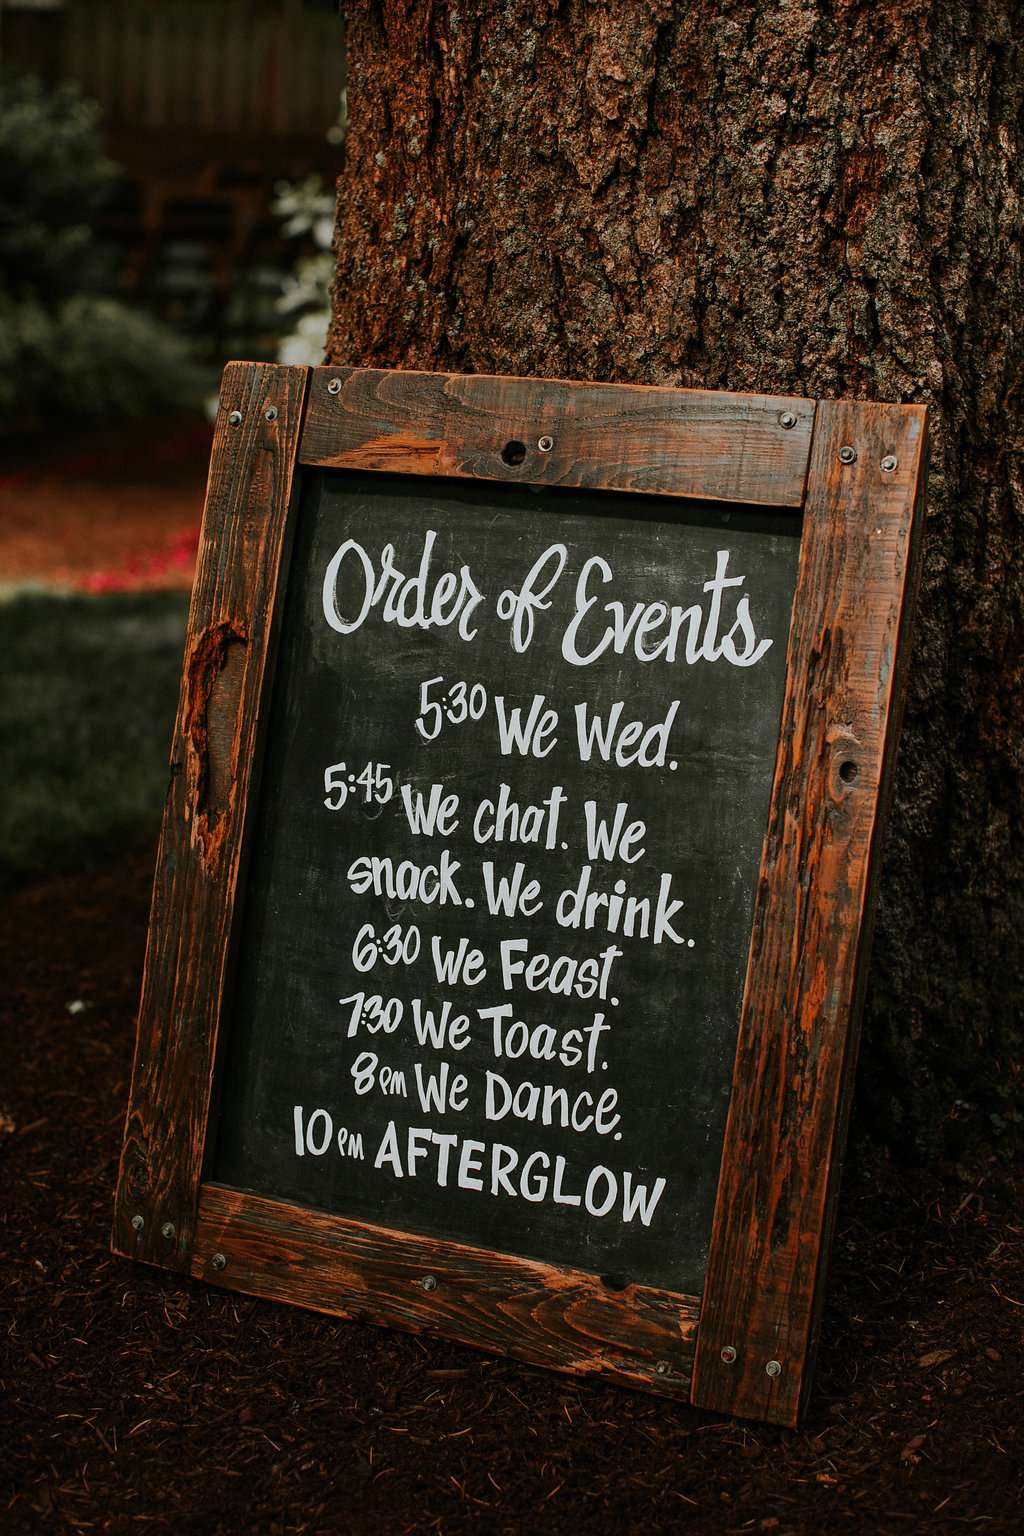 Order of Events
5:30 We Wed.
5:45 We chat. We
snack. We drink.
6:30 We Feast.
7:30 We Toast.
8pm We Dance.
10pm AFTERGLOW